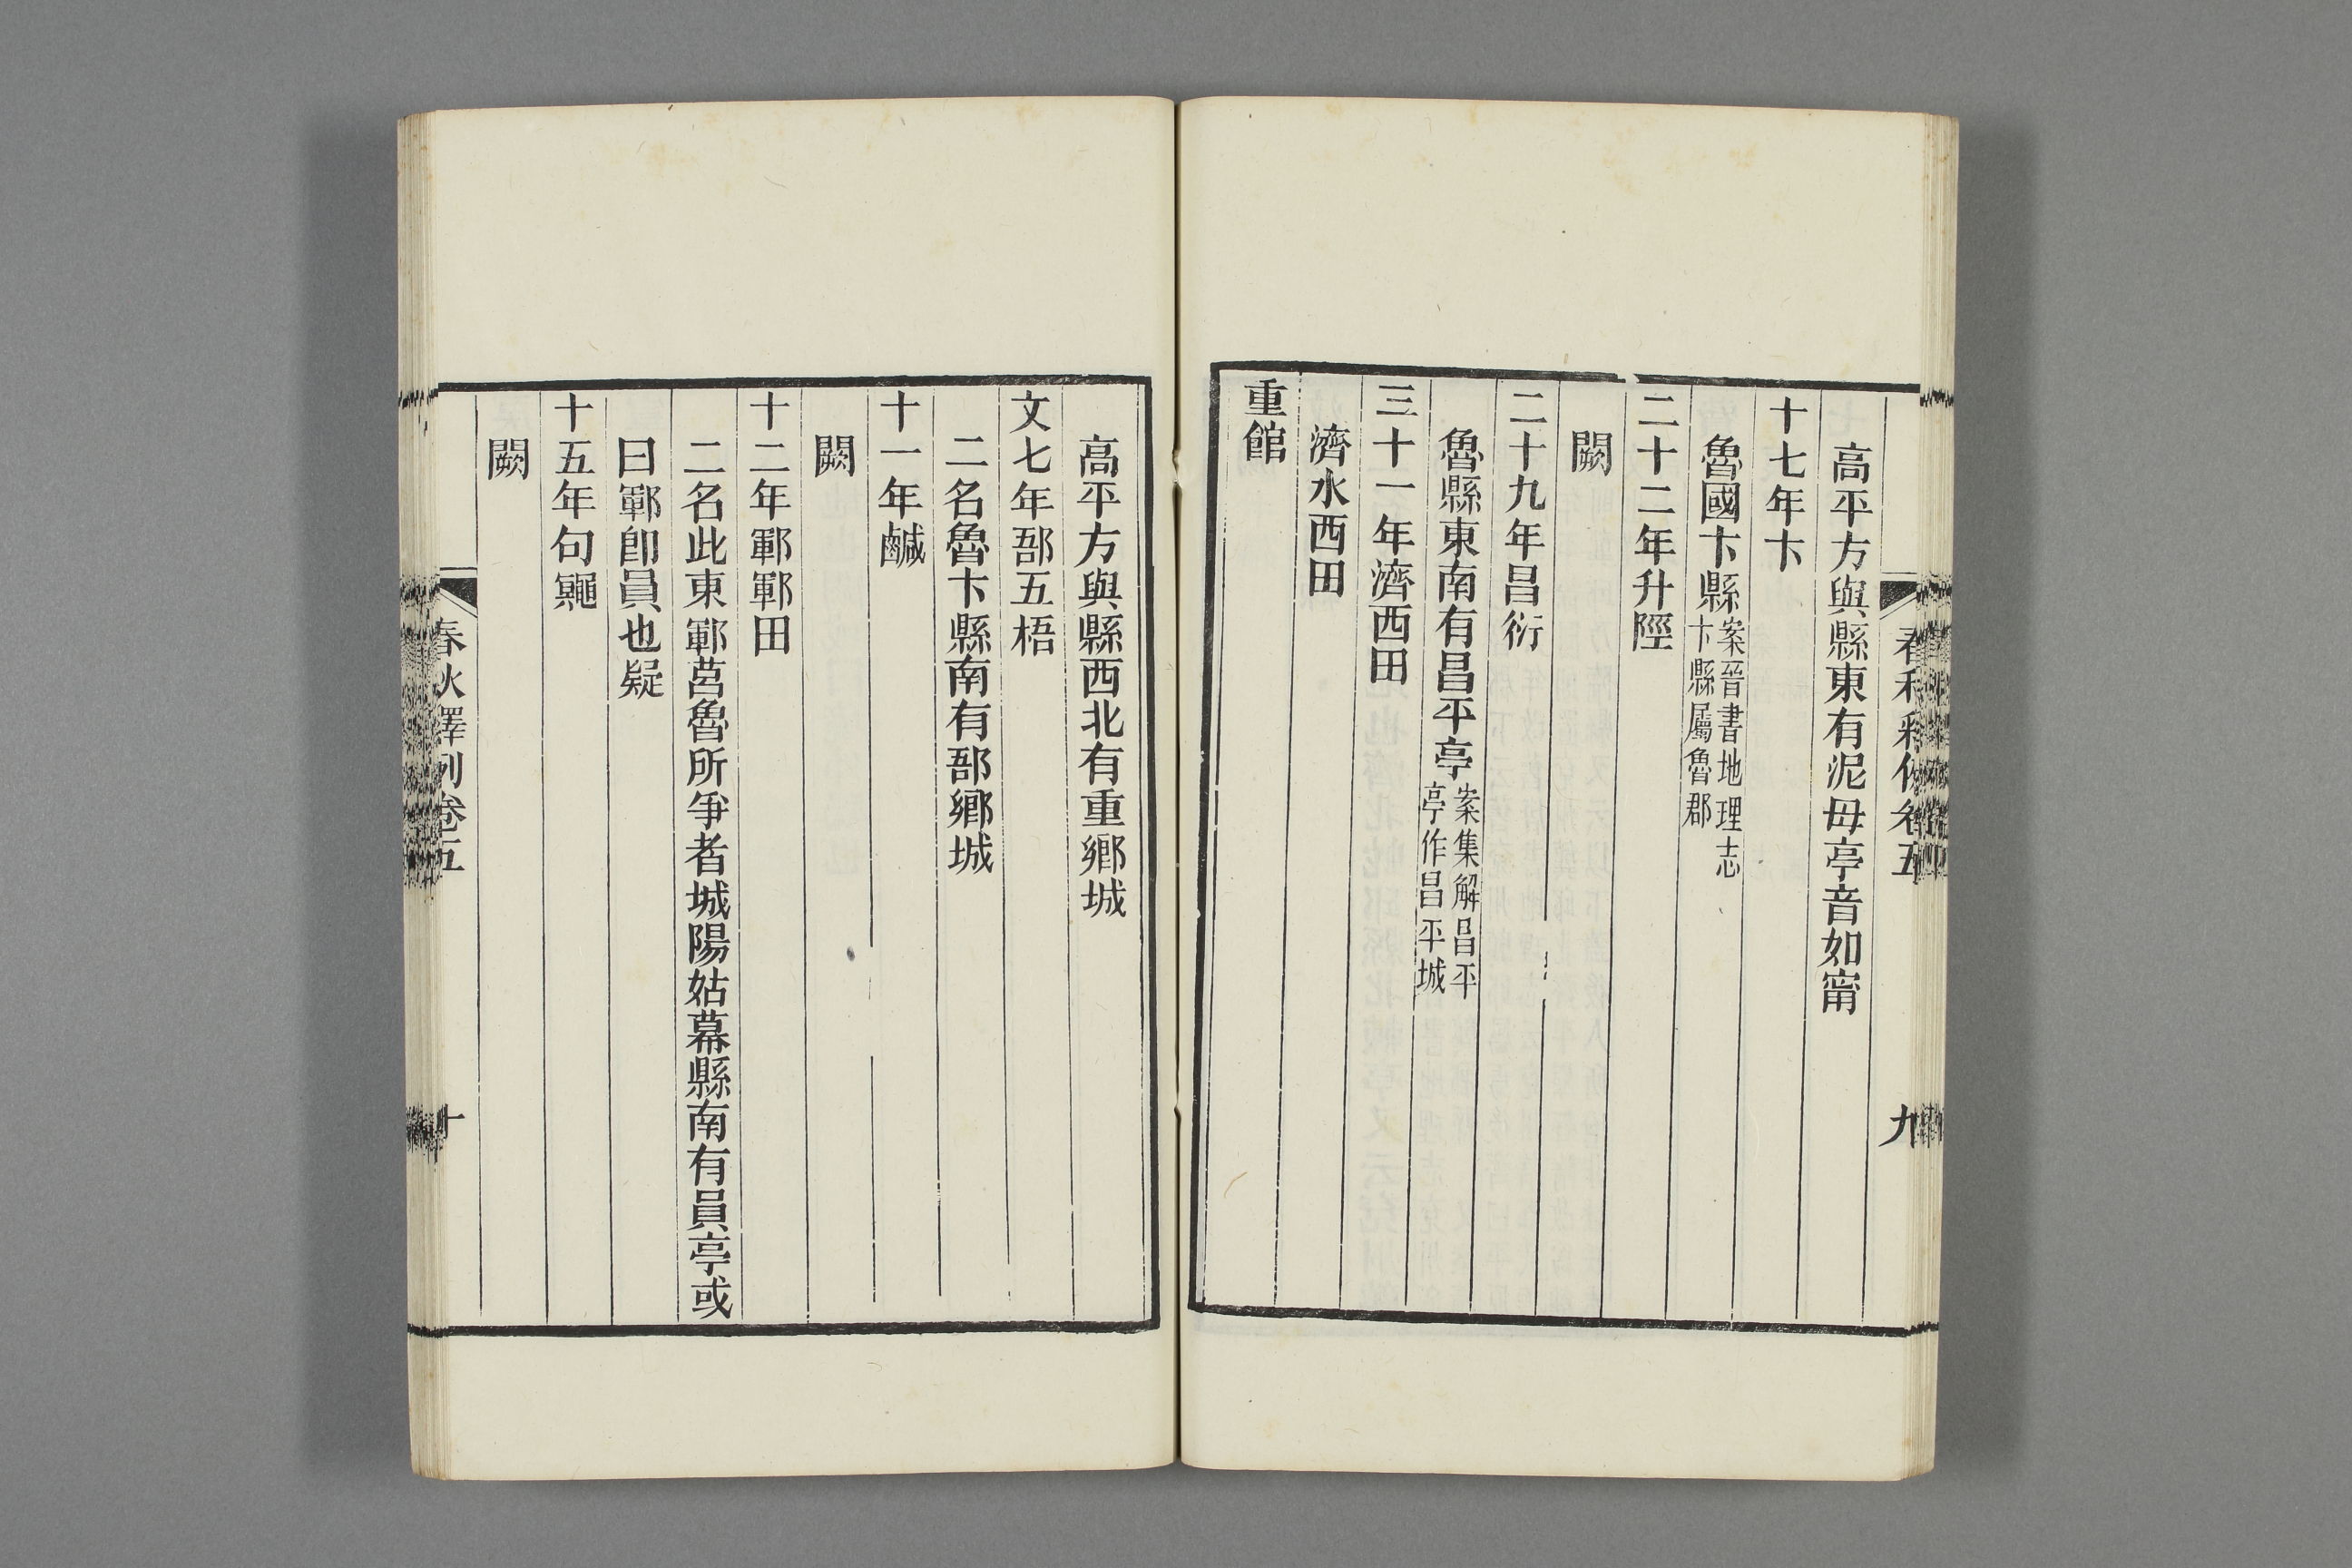 春秋釋例卷五
九
高平方與縣東有泥母亭音如甯
十七年卞
魯國卞縣案晉書地理志卞縣屬魯郡
二十二年升陘
闕
二十九年昌衍
魯縣東南有昌平亭案集解昌平亭作昌平城
三十一年濟西田
濟水西田
重館
高平方與縣西北有重鄉城
文七年郚五梧
二名魯卞縣南有郚鄉城
十一年鹹
闕
十二年鄆鄆田
二名此東鄆莒魯所爭者城陽姑幕縣南有員亭或
曰鄆卽員也疑
十五年句鼆
闕
春秋釋例卷五
十